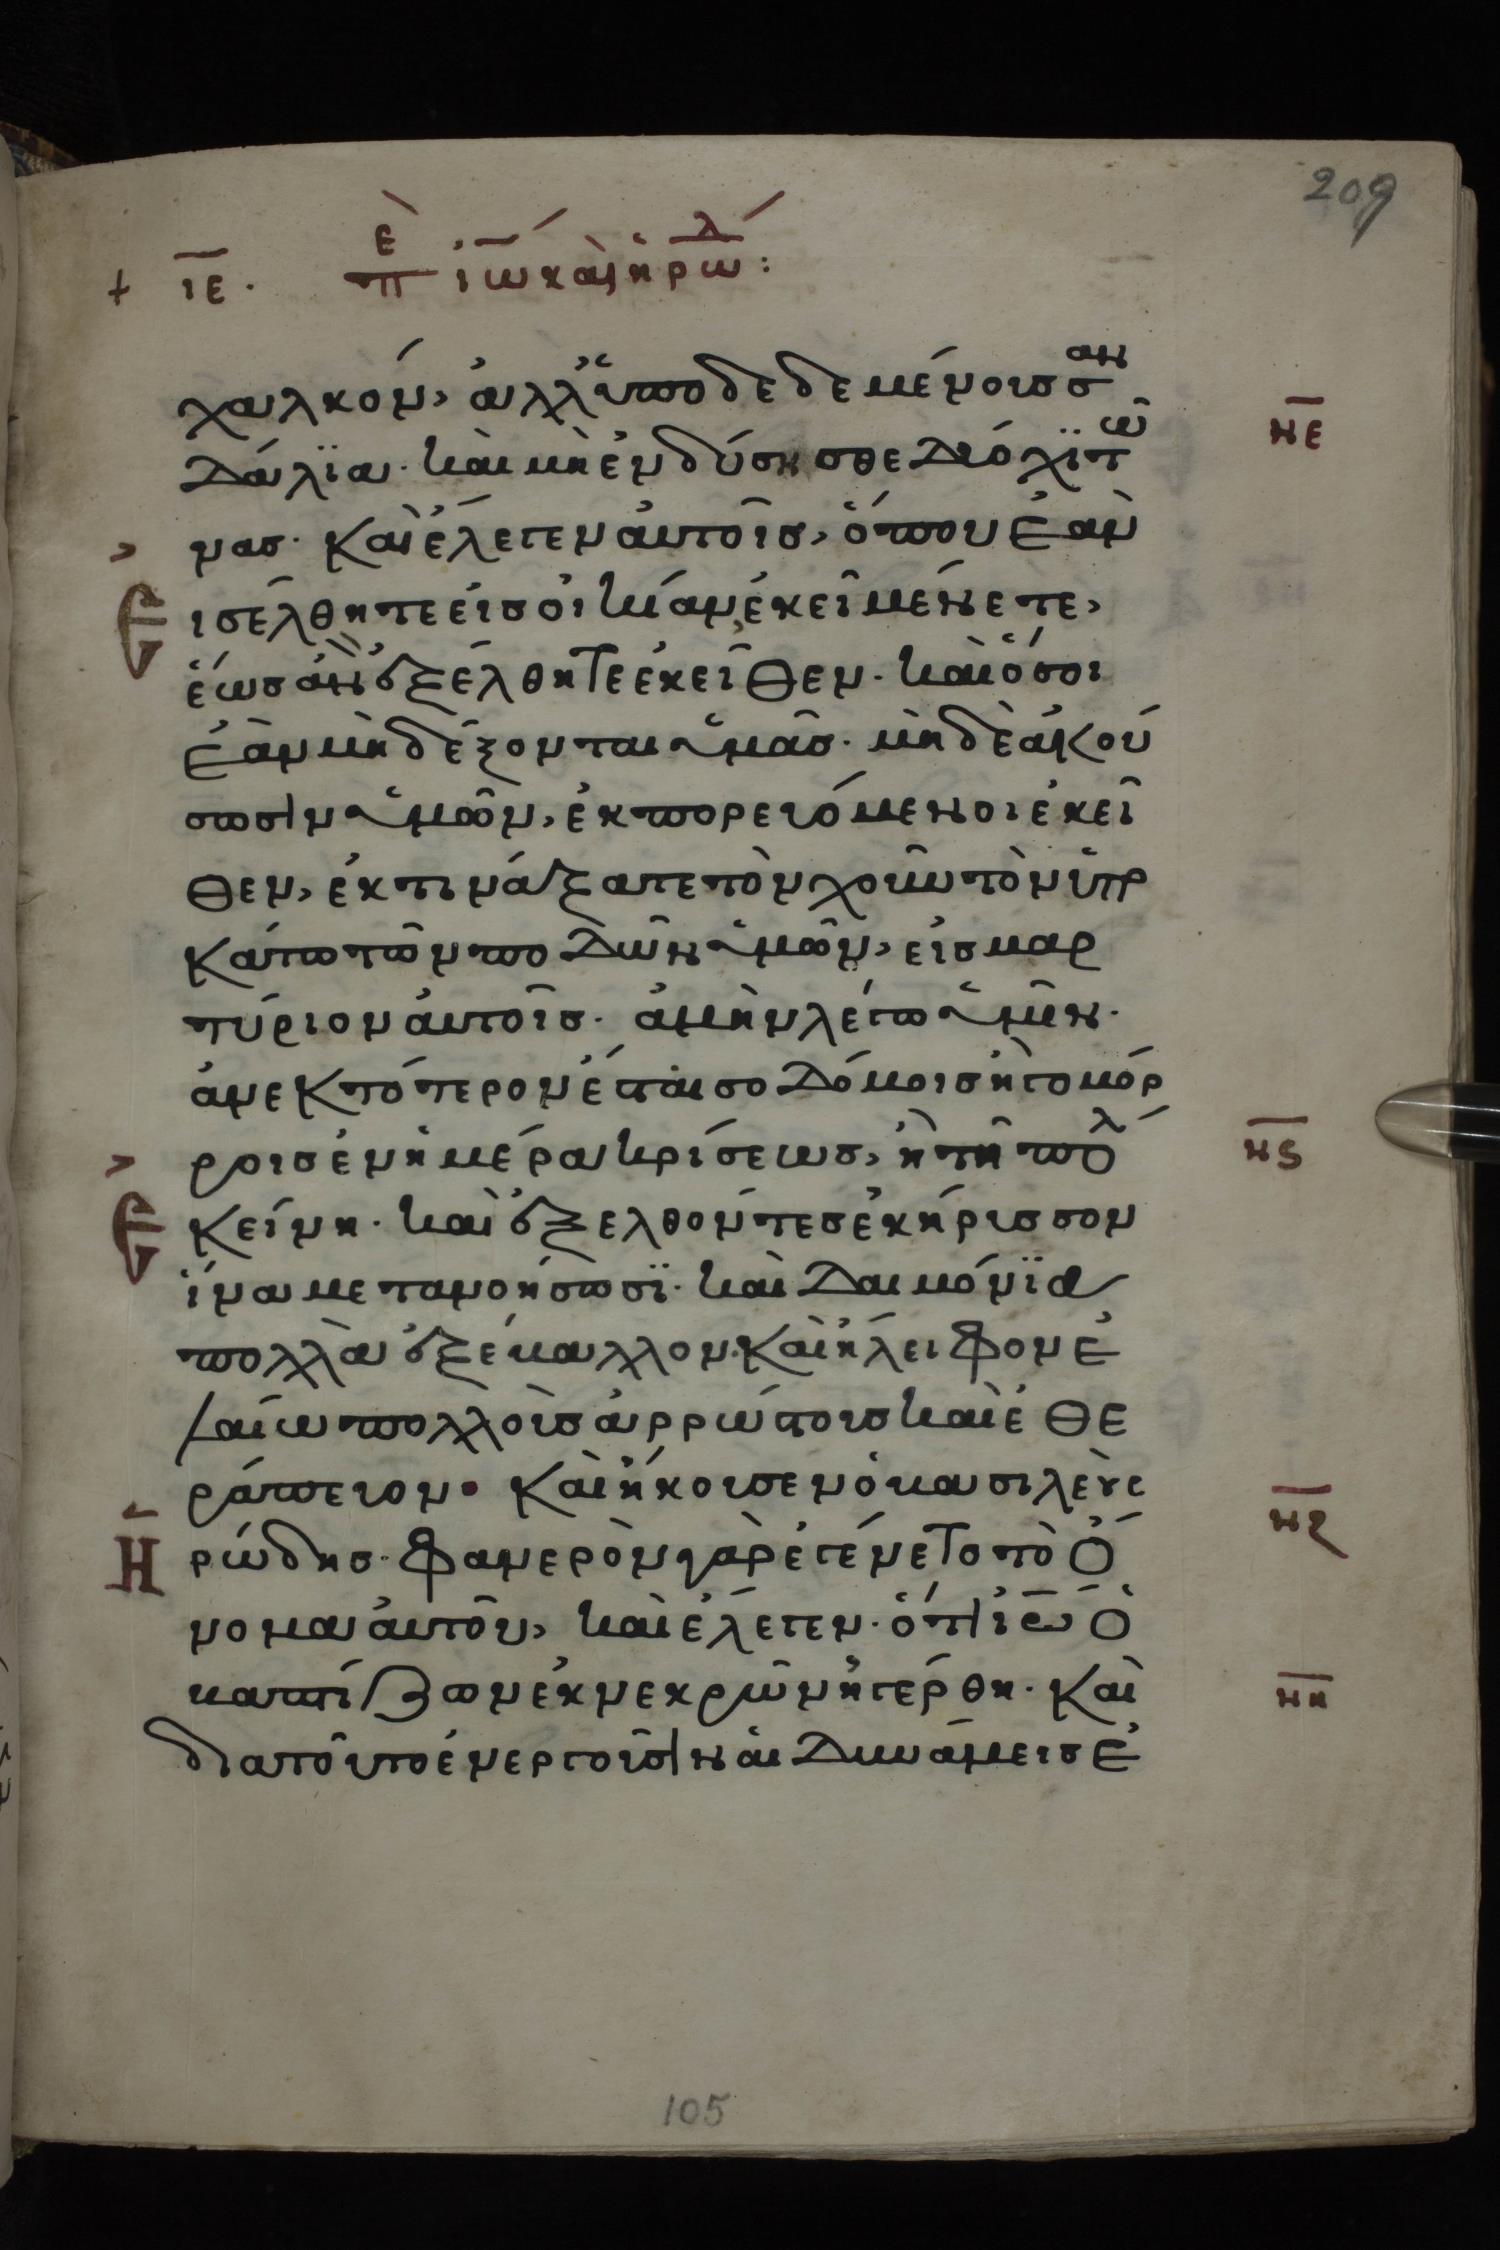 209
+ ιε · πε ιω και ηρωδ :
χαλκόν, ἀλλ' ὑποδεδεμένους σαν
δάλϊα · καὶ μὴ ἐνδύσησθε δύο χϊτῶ
νας · καὶ ἔλεγεν αὐτοῖς, ὅπου ἐὰν
εἰσέλθητε εἰς οἰκίαν ἐκεῖ μένετε,
ἕως ἂν ἐξέλθητε ἐκεῖθεν · καὶ ὅσοι
νε
ἐὰν μὴ δέξονται ὑμᾶς · μὴδὲ ἀκού
σωσιν ὑμῶν, ἐκπορευόμενοι ἐκεῖ
θεν, ἐκτινάξατε τὸν χοῦν τὸν ὑπο
κάτω τῶν ποδῶν ὑμῶν, εἰς μαρ
τύριον αὐτοῖς · ἀμὴν λέγω ὑμῖν ·
ἀνεκτότερον ἔσται σοδόμοις ἢ γομόρ
ροις ἐν ἡμέρα κρίσεως, ἢ τῆ πόλ
νς
ἐκείνη · καὶ ἐξελθόντες ἐκήρυσσον
ἵνα μετανοήσωσϊ · καὶ δαιμόνϊα
πολλὰ ἐξέβαλλον · καὶ ἤλειφον ἐ
λαίω πολλοὺς ἀρρώστους καὶ ἐθε
ράπευον · καὶ ἤκουσεν ὁ βασιλεὺς
νζ
ἡρώδης · φανερὸν γὰρ ἐγένετο τὸ ὄ
νομα αὐτοῦ, καὶ ἔλεγεν · ὅτι ιω ὁ
βαπτίζων ἐκ νεκρῶν ἠγέρθη · καὶ
νη
διατοῦτο ἐνεργοῦσιν αἱ δυνάμεις ἐ
105